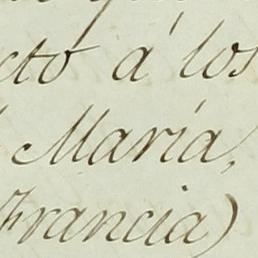 cto á los
María,
Francia)